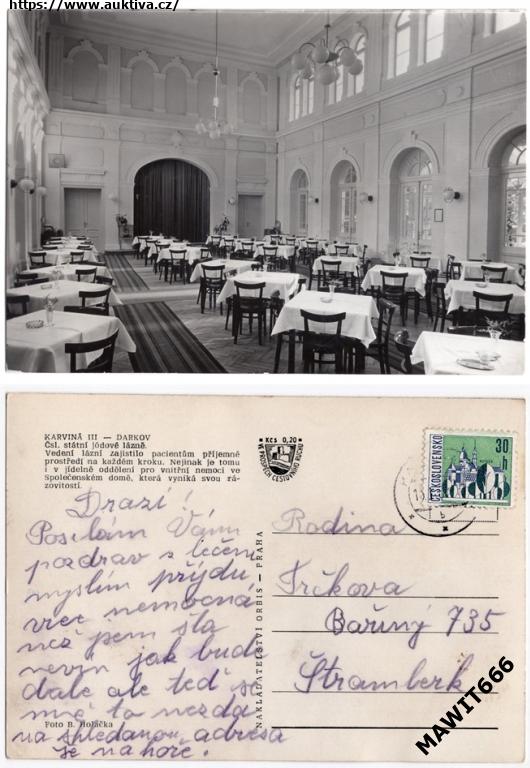 https://www.auktiva.cz/
KARVINÁ III — DARKOV
Čsl. státní jódové lázně.
Vedení lázní zajistilo pacientům příjemné
prostředí na každém kroku. Nejinak je tomu
i v jídelně oddělení pro vnitřní nemoci ve
Společenském domě, která vyniká svou rá-
zovitostí.
Drazí!
Posílám Vám
pozdrav z léčení
myslím přijdu
více nemocná
než jsem šla
nevím jak bude
dále ale teď se
mě to nezdá
na shledanou adresa
je nahoře!
Foto B. Holačka
NAKLADATELSTVÍ ORBIS — PRAHA
Kčs 0,20
VE PROSPĚCH CESTOVNÍHO RUCHU
ČESKOSLOVENSKO
30
h
Rodina
Trčkova
Bařiny 735
Štramberk
MAWIT666